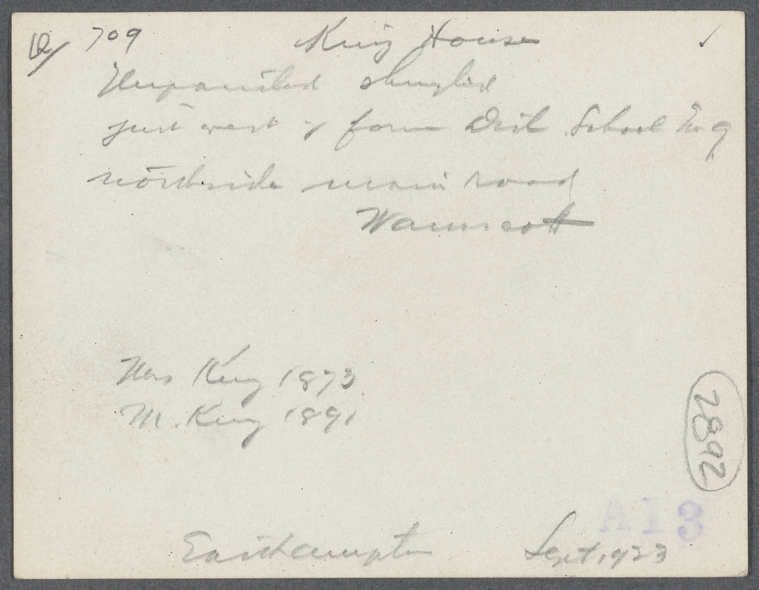 10/ 709 King House ✓
Unpainted shingled
just west of form Dist. School No 9
northside main road
Wainscott
Mrs King 1873
M. King 1891
2892
A13
Easthampton Sept, 1923